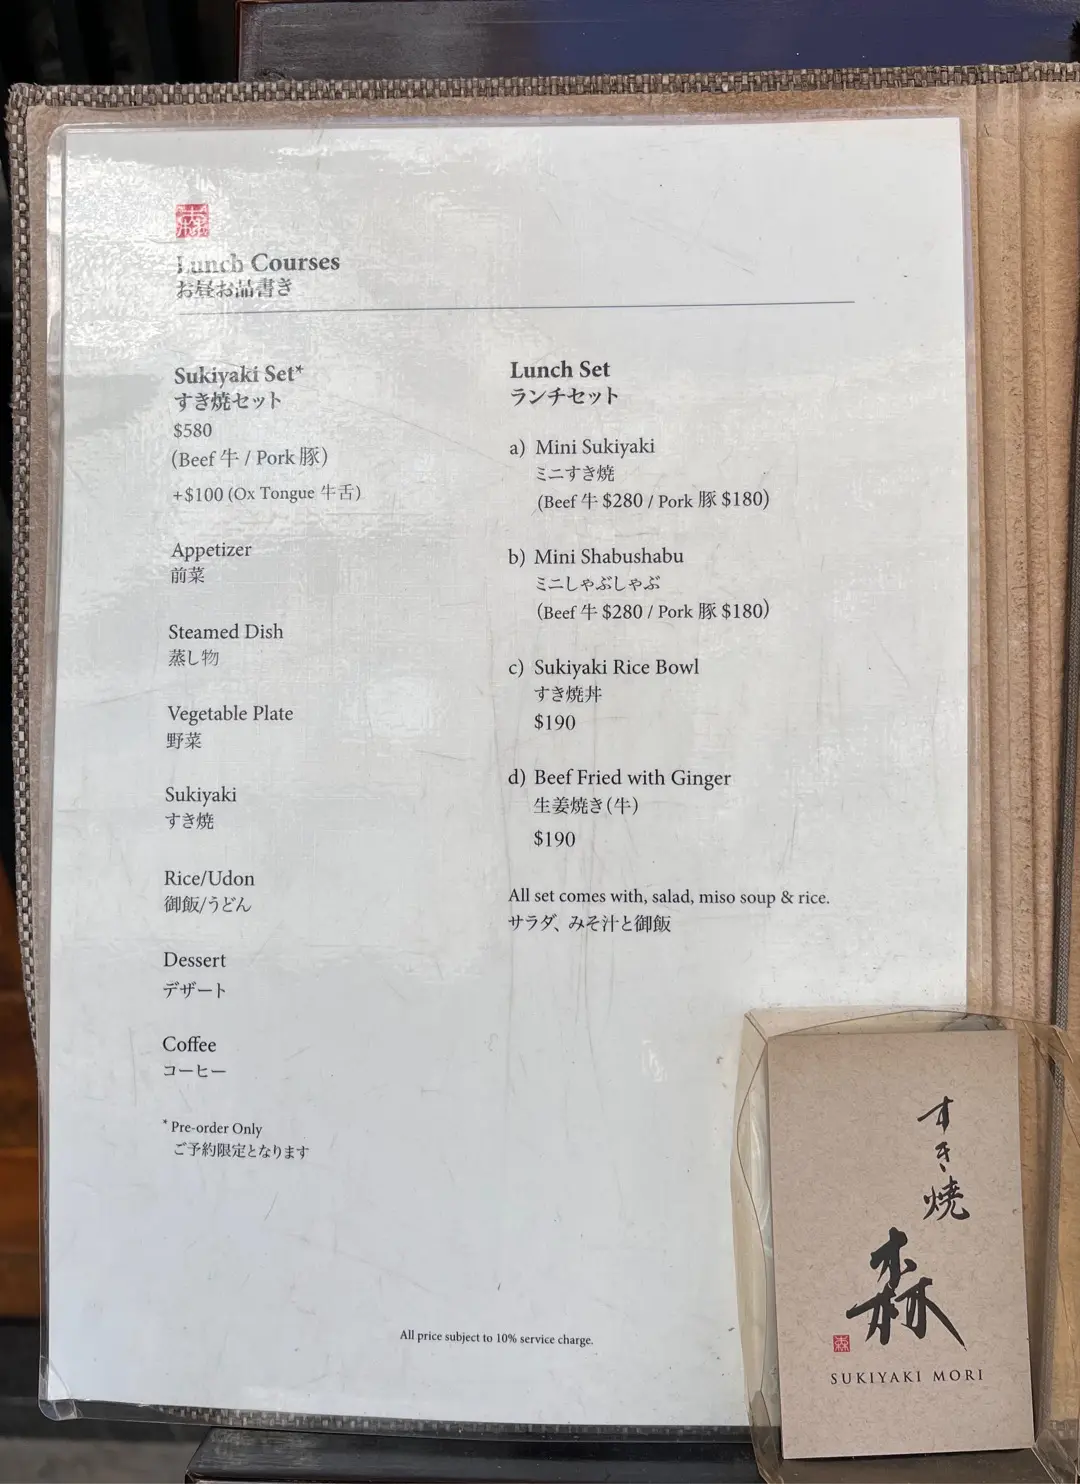 森
Lunch Courses
お昼お品書き
Sukiyaki Set*
すき焼セット
$580
(Beef 牛 / Pork 豚)
+$100 (Ox Tongue 牛舌)
Appetizer
前菜
Steamed Dish
蒸し物
Vegetable Plate
野菜
Sukiyaki
すき焼
Rice/Udon
御飯/うどん
Dessert
デザート
Coffee
コーヒー
* Pre-order Only
ご予約限定となります
Lunch Set
ランチセット
a) Mini Sukiyaki
ミニすき焼
(Beef 牛 $280 / Pork 豚 $180)
b) Mini Shabushabu
ミニしゃぶしゃぶ
(Beef 牛 $280 / Pork 豚 $180)
c) Sukiyaki Rice Bowl
すき焼丼
$190
d) Beef Fried with Ginger
生姜焼き(牛)
$190
All set comes with, salad, miso soup & rice.
サラダ、みそ汁と御飯
All price subject to 10% service charge.
すき焼
森
森
SUKIYAKI MORI